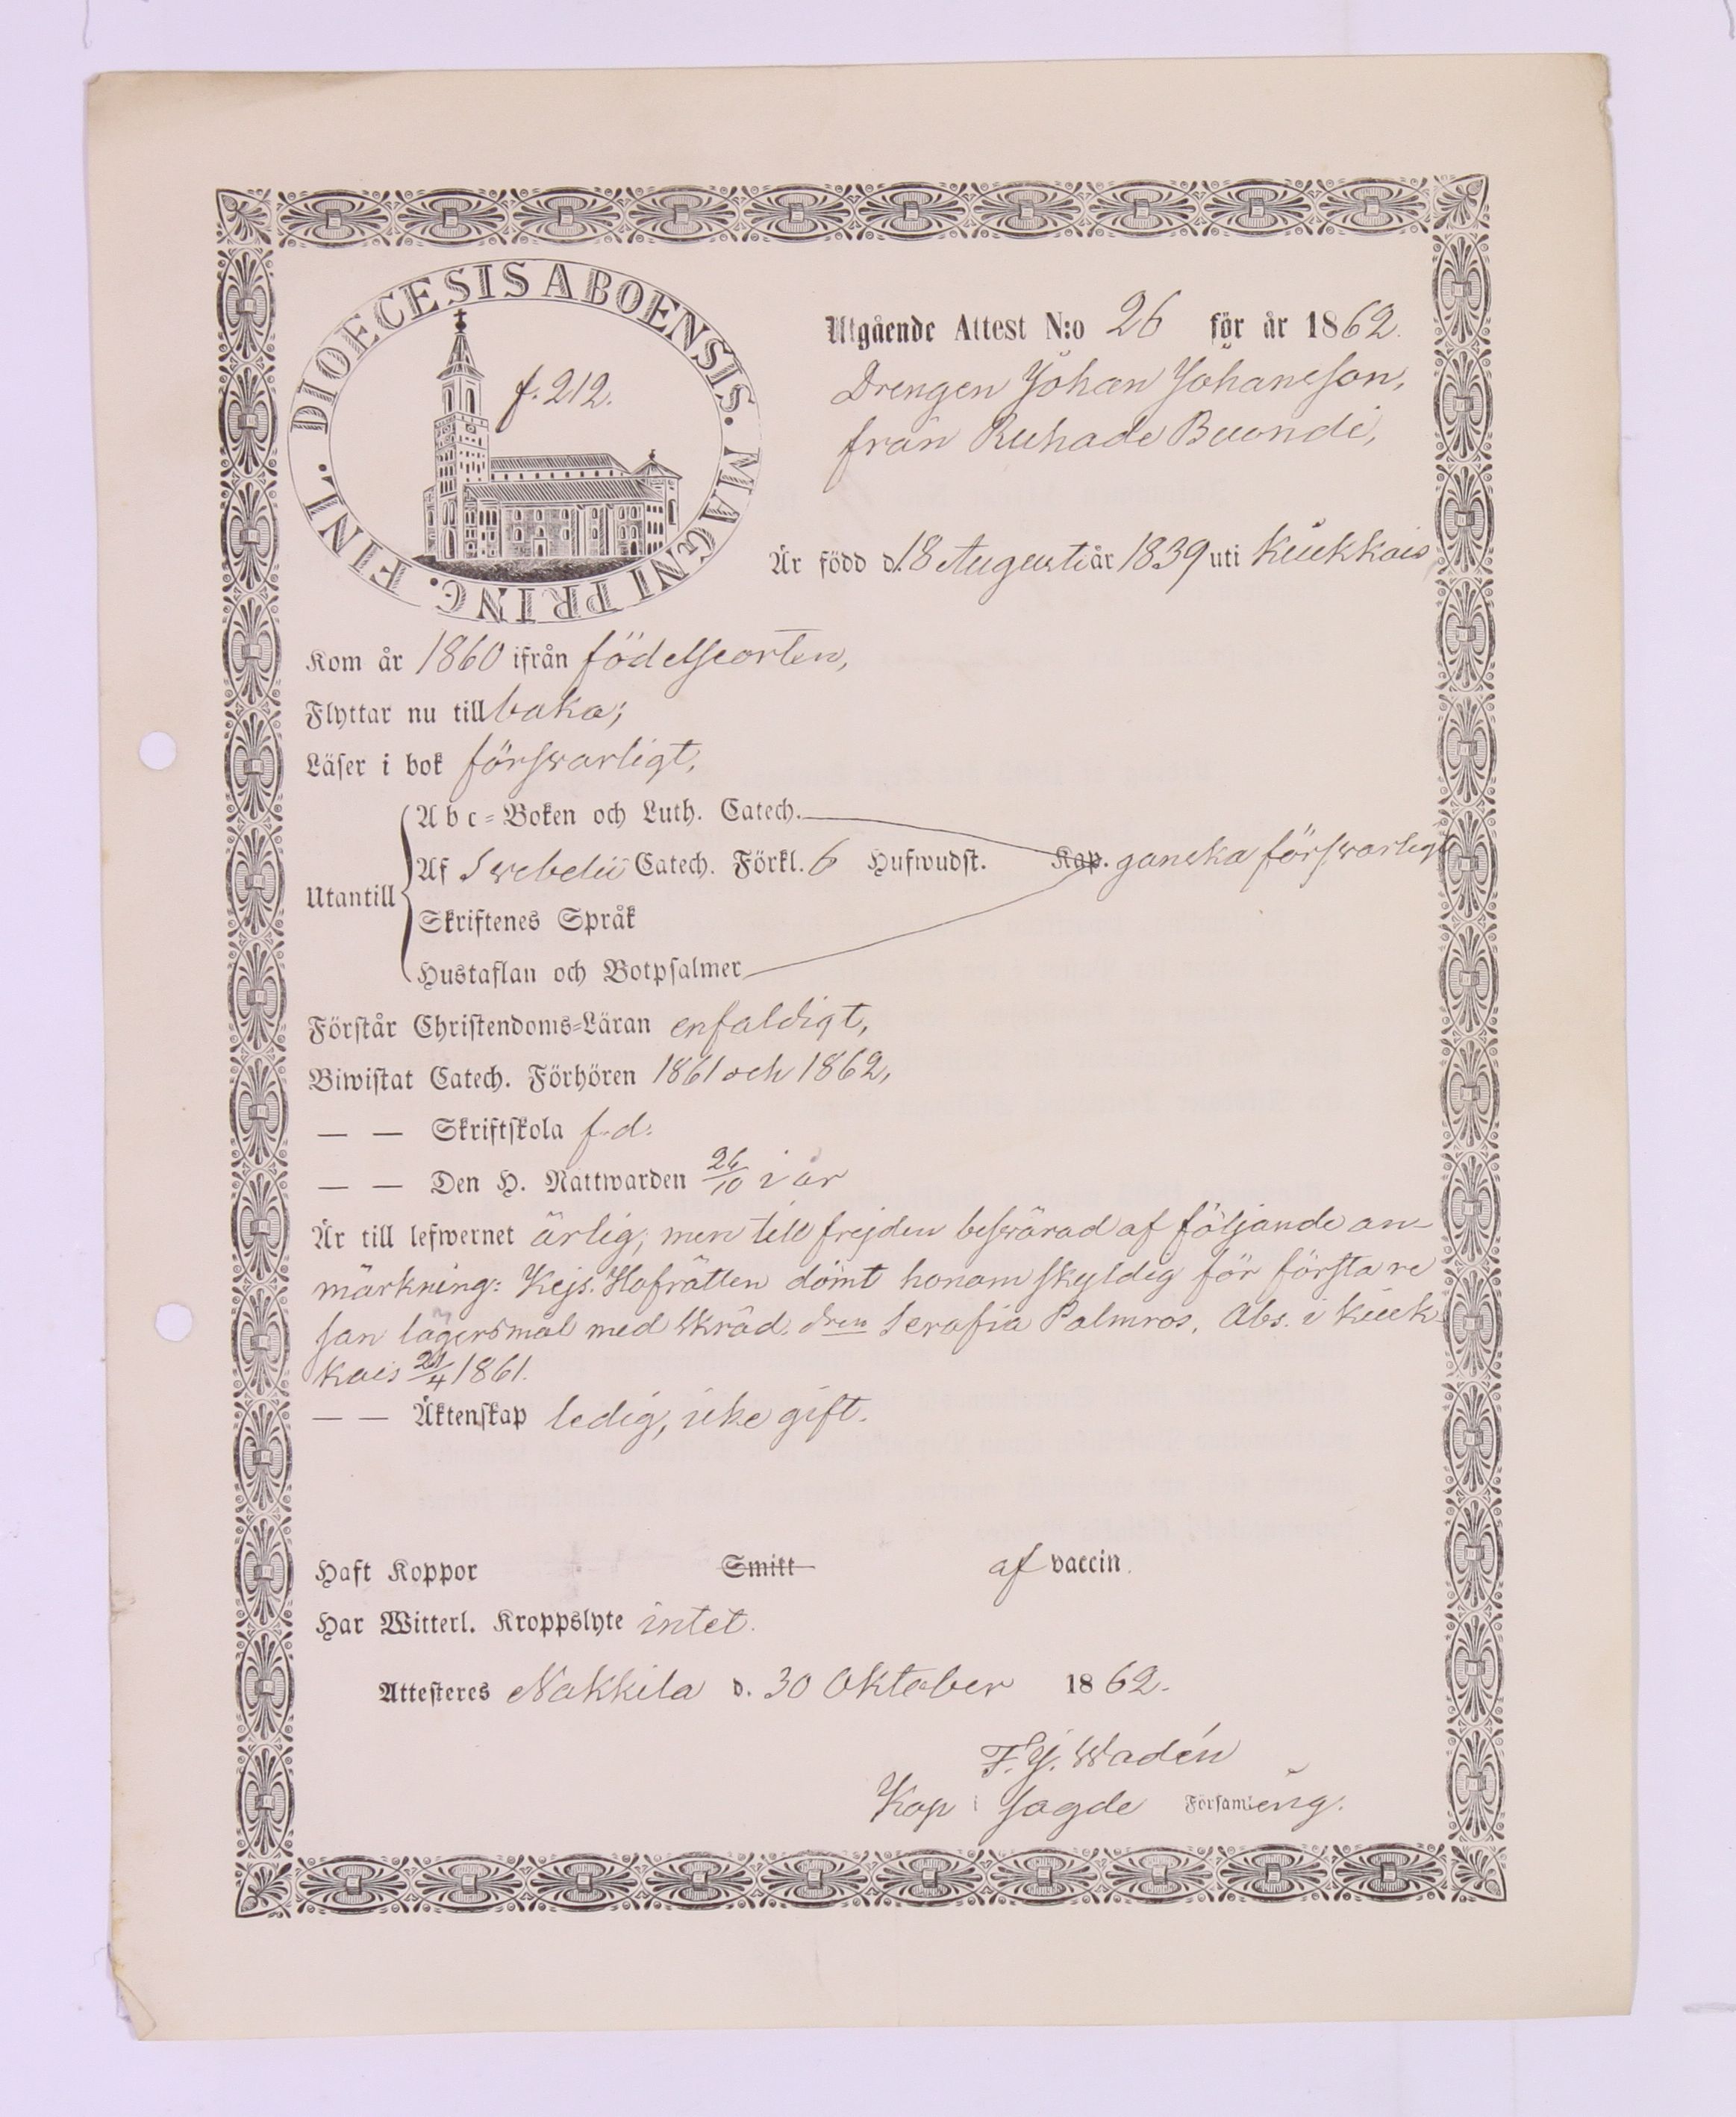 DIOECESIS ABOENSIS. MAGNI PRINC. FINL.
f. 212.
Utgående Attest N:o 26 för år 1862.
Drengen Johan Johansson,
från Ruhade Buondi,
Är född d. 18 Augusti år 1839 uti Kiukkais
Kom år 1860 ifrån födelseorten,
Flyttar nu tillbaka;
Läser i bok förswarligt,
Abc-Boken och Luth. Catech.
Utantill
Af Swebelii Catech. Förkl. 6 Hufwudst. Kap. ganska förswarligt
Skriftenes Språk
Hustaflan och Botpsalmer
Förstår Christendoms-Läran enfaldigt,
Biwistat Catech. Förhören 1861 och 1862,
— — Skriftskola f. d.
— — Den H. Nattwarden 26/10 i år
Är till lefwernet ärlig, men till frejden beswärad af följande an-
märkning: Kejs. Hofrätten dömt honom skyldig för första re
san lägersmål med Skräd. dren Serafia Palmros, Abs. i Kiuk-
kais 21/4 1861.
— — Äktenskap ledig, icke gift.
Haft Koppor Smitt af vaccin.
Har Witterl. Kroppslyte intet.
Attesteres Nakkila d. 30 Oktober 1862.
F. J. Wadén
Kap i sagde Församling.